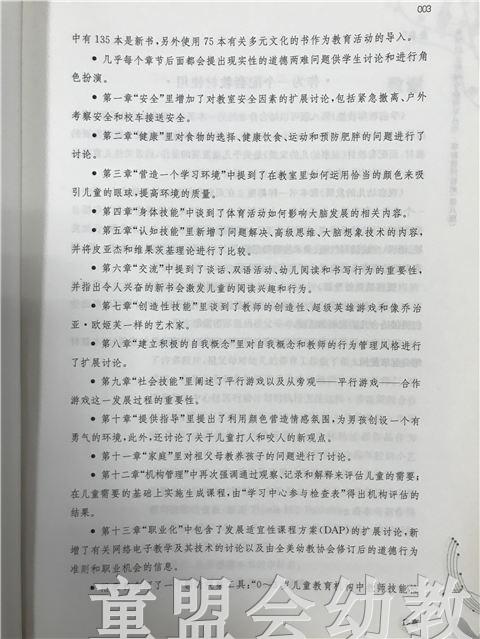 003
中有 135 本是新书,另外使用 75 本有关多元文化的书作为教育活动的导入。
● 几乎每个章节后面都会提出现实性的道德两难问题供学生讨论和进行角
色扮演。
● 第一章“安全”里增加了对教室安全因素的扩展讨论,包括紧急撤离、户外
考察安全和校车接送安全。
● 第二章“健康”里对食物的选择、健康饮食、运动和预防肥胖的问题进行了
讨论。
● 第三章“营造一个学习环境”中提到了在教室里如何运用恰当的颜色来吸
引儿童的眼球,提高环境的质量。
● 第四章“身体技能”中谈到了体育活动如何影响大脑发展的相关内容。
● 第五章“认知技能”里新增了问题解决、高级思维、大脑想象技术的内容,
并将皮亚杰和维果茨基理论进行了比较。
● 第六章“交流”中提到了谈话、双语活动、幼儿阅读和书写行为的重要性,
并指出令人兴奋的新书会激发儿童的阅读兴趣和行为。
● 第七章“创造性技能”里谈到了教师的创造性、超级英雄游戏和像乔治
亚·欧姬芙一样的艺术家。
● 第八章“建立积极的自我概念”里对自我概念和教师的行为管理风格进行
了扩展讨论。
● 第九章“社会技能”里阐述了平行游戏以及从旁观——平行游戏——合作
游戏这一发展过程的重要性。
● 第十章“提供指导”里提出了利用颜色营造情感氛围,为男孩创设一个有
勇气的环境,此外,还讨论了关于儿童打人和咬人的新观点。
● 第十一章“家庭”里对祖父母教养孩子的问题进行了讨论。
● 第十二章“机构管理”中再次强调通过观察、记录和解释来评估儿童的需要;
在儿童需要的基础上实施生成课程,由“学习中心参与检查表”得出机构评估的
结果。
● 第十三章“职业化”中包含了发展适宜性课程方案(DAP)的扩展讨论,新
增了有关网络电子教学及其技术的讨论以及由全美幼教协会修订后的道德行为
准则和职业机会的信息。
了一 工具:“0~ 儿童教育机构中 师技能
童盟会幼教